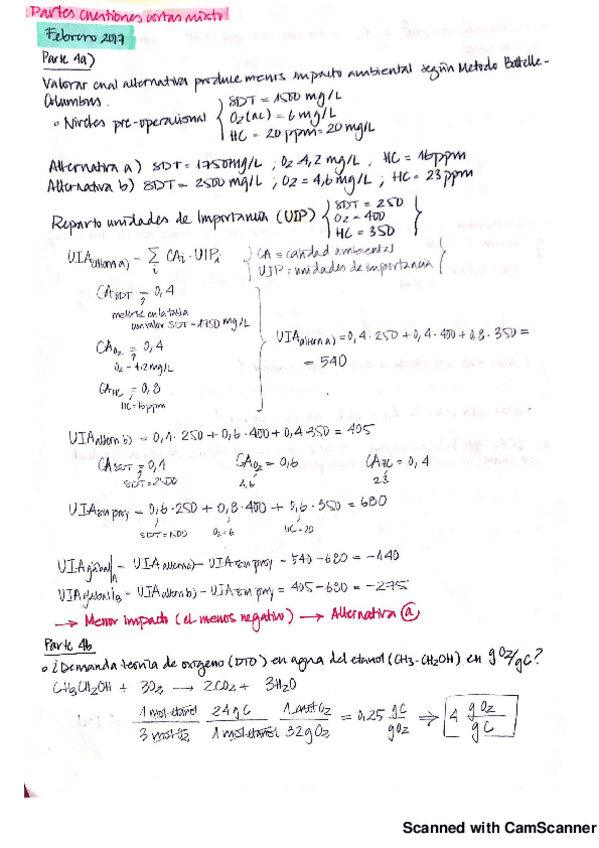 Partes cuestiones cortas mixto
Febrero 2017
Parte 4a)
Valorar cual alternativa produce menos impacto ambiental según Metodo Battelle-
Columbus.
• Niveles pre-operacional { SDT = 1500 mg/L
O2(ac) = 6 mg/L
HC = 20 ppm = 20 mg/L
Alternativa a) SDT = 1750 mg/L ; O2 = 4,2 mg/L , HC = 16 ppm
Alternativa b) SDT = 2500 mg/L ; O2 = 4,6 mg/L ; HC = 23 ppm
Reparto unidades de Importancia (UIP) { SDT = 250
O2 = 400
HC = 350 }
UIA altern a) = Σi CAi · UIPi { CA = calidad ambiental
UIP = unidades de importancia }
CA SDT = 0,4
meterse en la tabla
con valor SDT = 1750 mg/L
CA O2 = 0,4
O2 = 4,2 mg/L
CA HC = 0,8
HC = 16 ppm
UIA altern a) = 0,4 · 250 + 0,4 · 400 + 0,8 · 350 =
= 540
UIA altern b) = 0,1 · 250 + 0,6 · 400 + 0,4 · 350 = 405
CA SDT = 0,1 CA O2 = 0,6 CA HC = 0,4
SDT = 2500 4,6 23
UIA sin proy = 0,6 · 250 + 0,8 · 400 + 0,6 · 350 = 680
SDT = 1500 O2 = 6 HC = 20
UIA global|A = UIA altern a) - UIA sin proy = 540 - 680 = -140
UIA global|B = UIA altern b) - UIA sin proy = 405 - 680 = -275
→ Menor impacto (el menos negativo) → Alternativa a
Parte 4b
• ¿Demanda teórica de oxígeno (DTO) en agua del etanol (CH3-CH2OH) en gO2/gC?
CH3CH2OH + 3O2 → 2CO2 + 3H2O
1 mol etanol 24 gC 1 mol O2
3 mol O2 1 mol etanol 32 gO2 = 0,25 gC/gO2 ⇒ 4 gO2/gC
Scanned with CamScanner